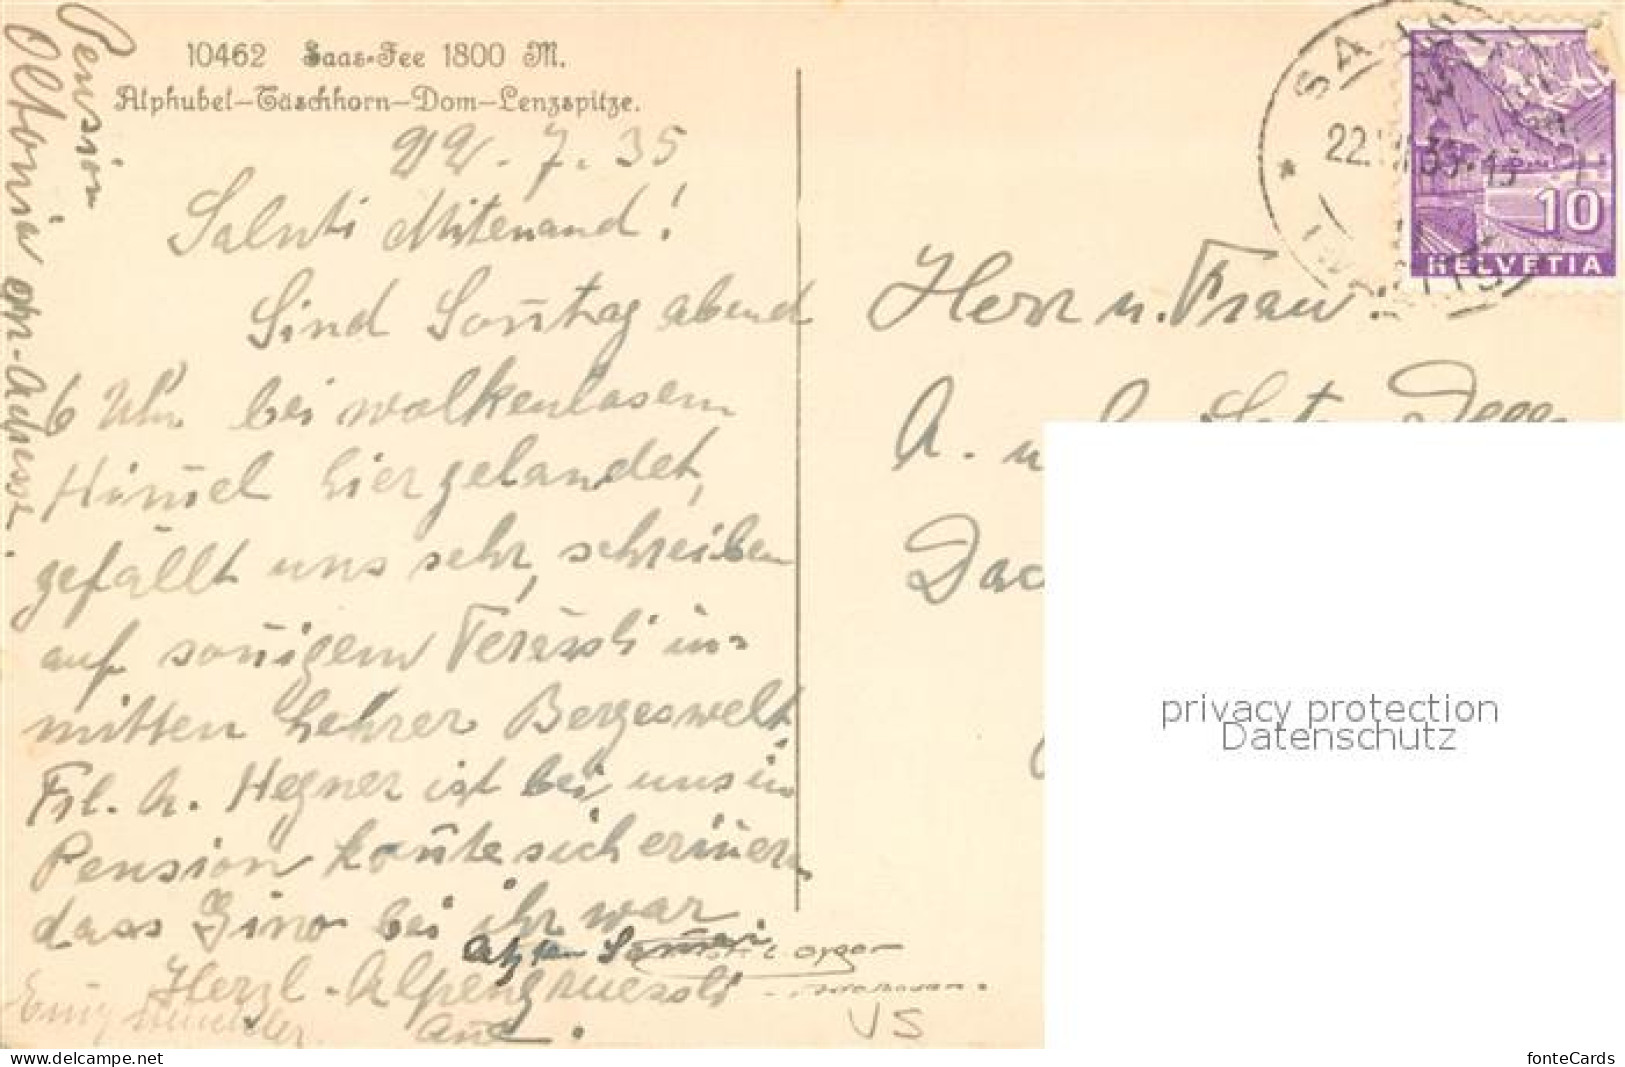 10462 Saas-Fee 1800 M.
Alphubel-Täschhorn-Dom-Lenzspitze.
Pension
Oltonia
22.7.35
Saluti Mitenand!
Sind Son̄tag abend
6 Uhr bei wolkenlosem
Him̄el hier gelandet,
gefällt uns sehr, schreiben
auf son̄igem Terässli in-
mitten hehrer Bergeswelt,
Frl. A. Hegner ist bei uns in
Pension kon̄te sich erin̄ern
dass Gino bei ihr war.
Herzl. Alpengruessli
VS
SA
22. 35-15
10
HELVETIA
Herr u. Frau.
A. u
Dac
privacy protection
Datenschutz
https://www.delcampe.net
fonteCards